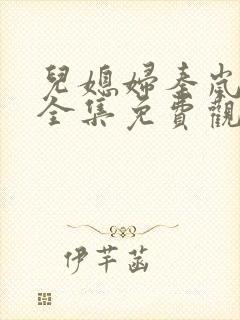 兒媳婦奎嵐
全集免費觀
伊芊菡